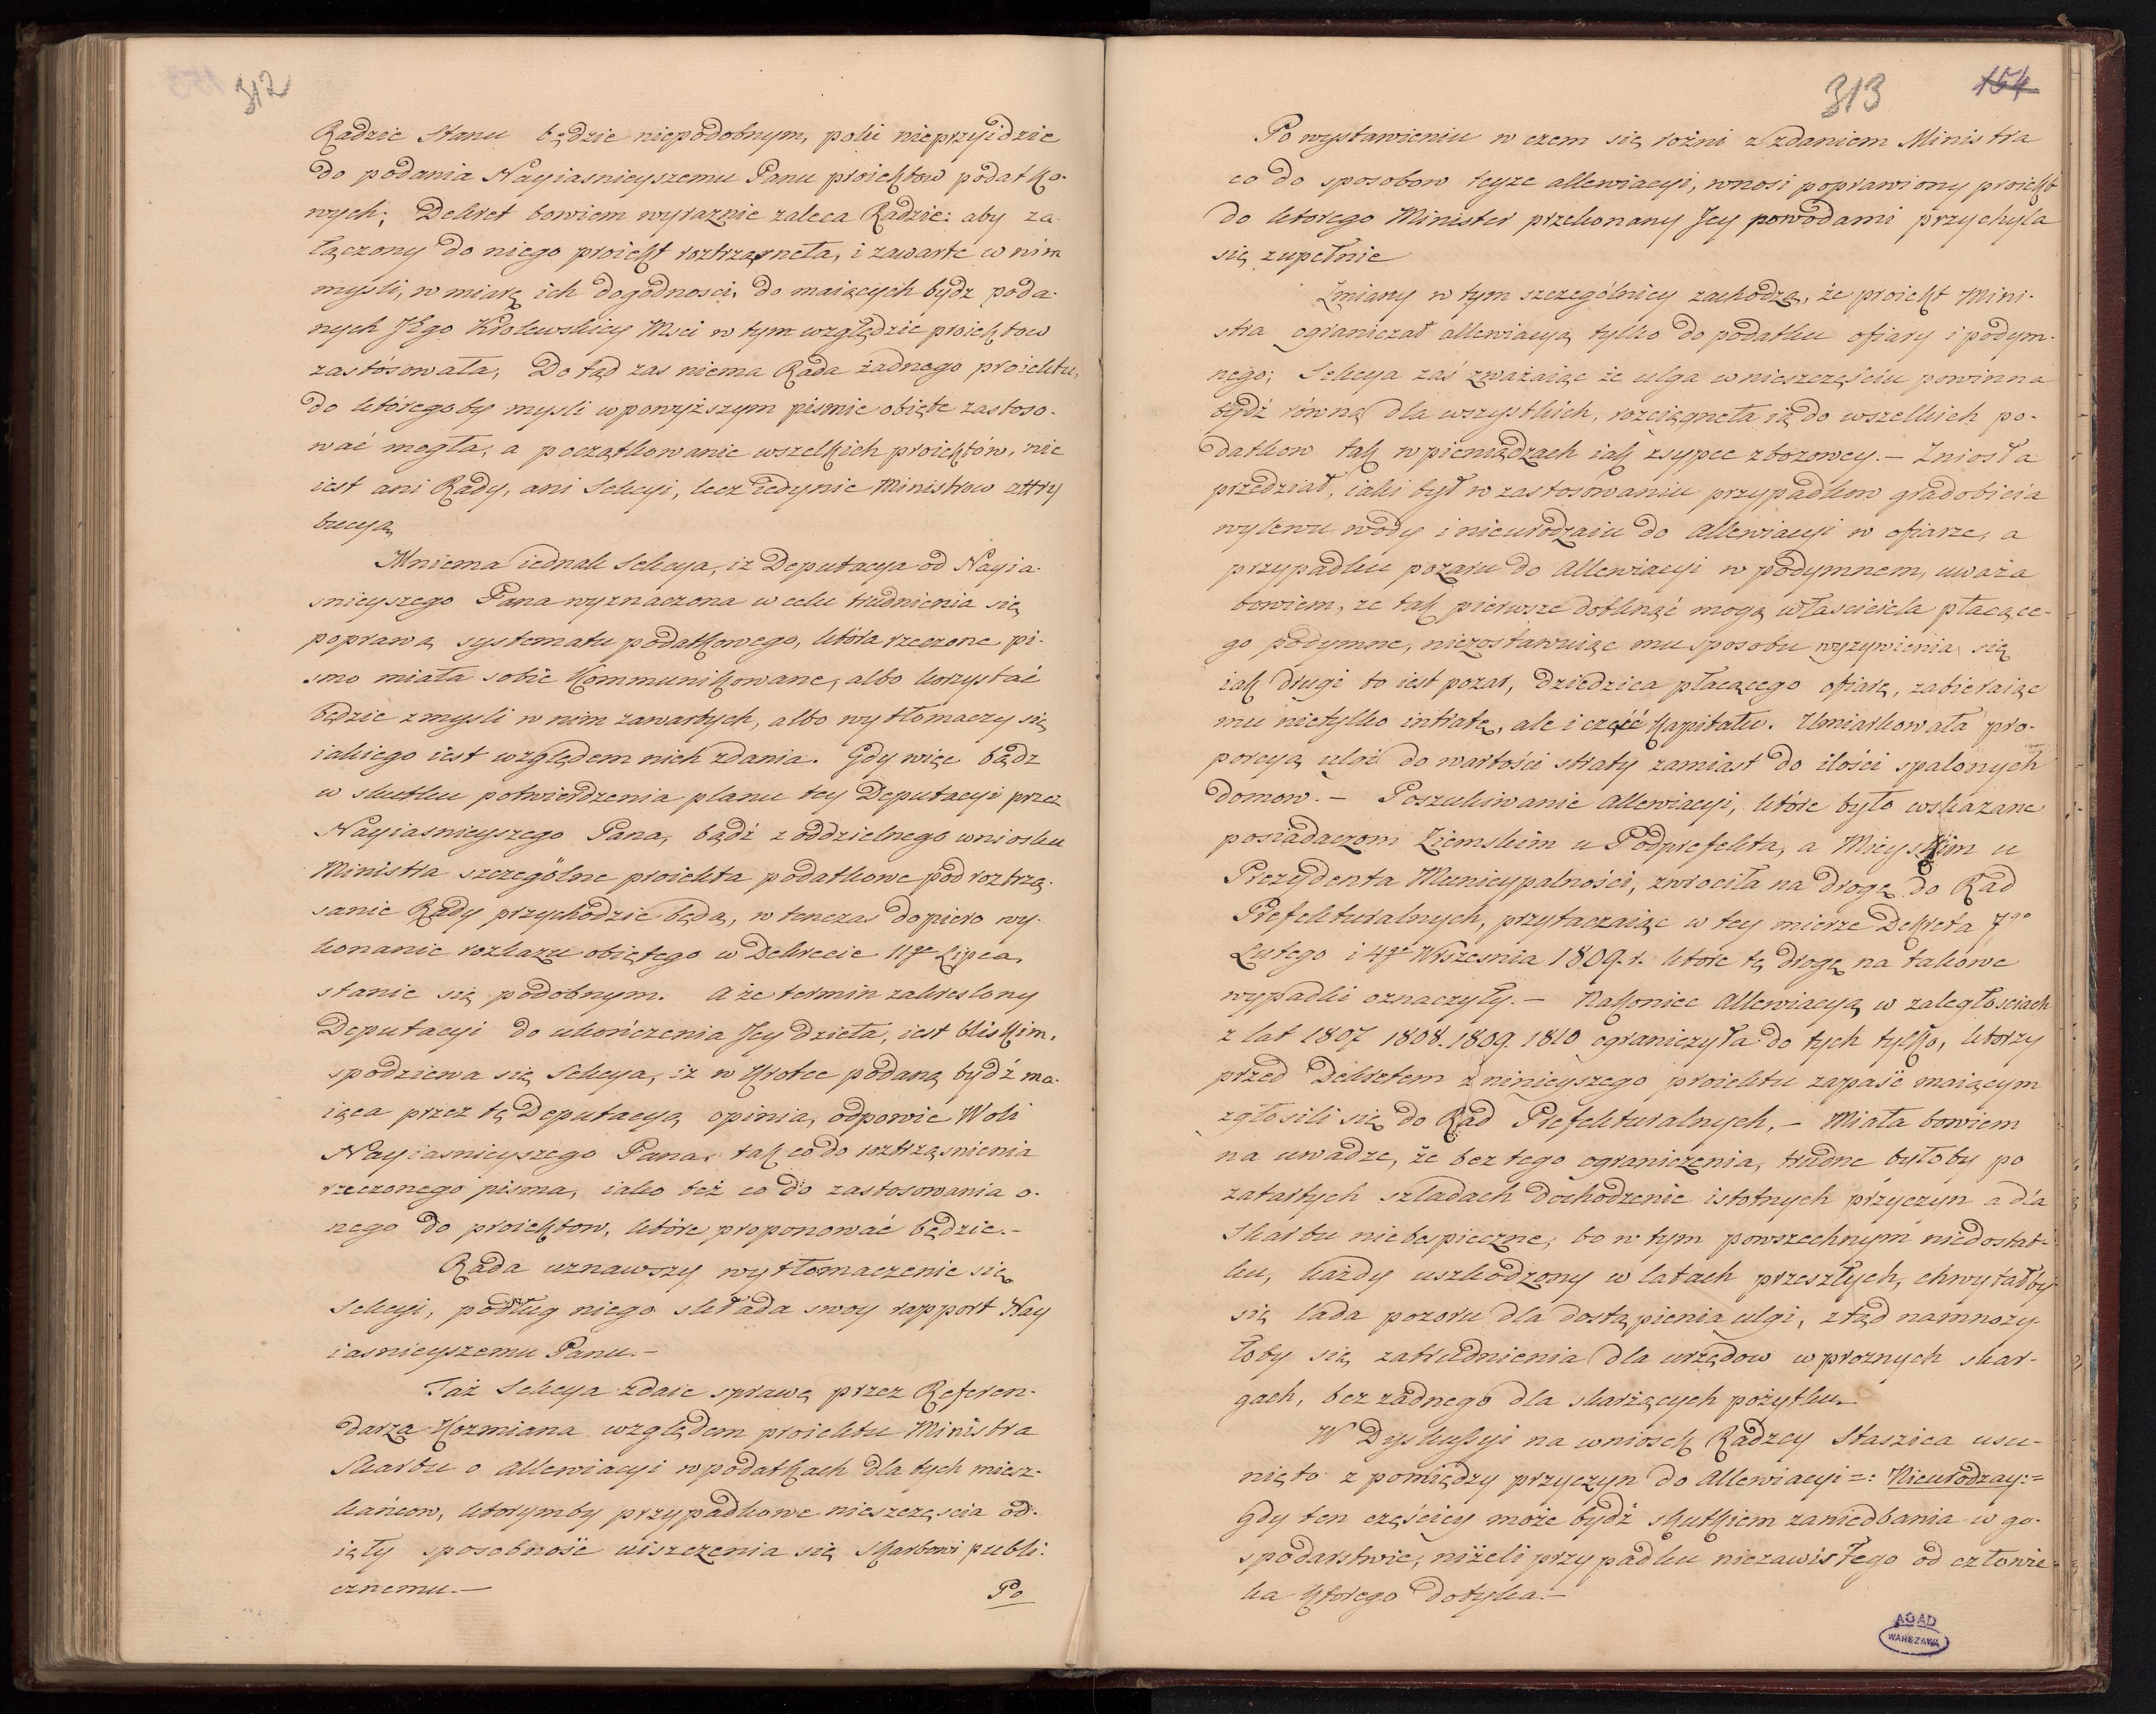 312
Radzie Stanu będzie niepodobnym, poki nieprzyidzie
do podania Nayiasnieyszemu Panu proiektow podatko-
wych; Dekret bowiem wyraznie zaleca Radzie: aby za-
łączony do niego proiekt roztrząsneła, i zawarte w nim
mysli, w miarę ich dogodnosci, do maiących bydz poda-
nych JKgo Krolewskiey Mci w tym względzie proiektow
zastósowała, Do tąd zas niema Rada żadnego proiektu,
do któregoby mysli w powyższym pismie obięte zastoso-
wać mogła, a początkowanie wszelkich proiektów, nie
iest ani Rady, ani Sekcyi, lecz iedynie Ministrow attry
bucyą
Mniema iednak Sekcya, iz Deputacya od Nayia-
snieyszego Pana wyznaczona w celu trudnienia się
poprawą systematu podatkowego, która rzeczone pi-
smo miała sobie Kommunikowane, albo korzystać
będzie z mysli w nim zawartych, albo wytłomaczy się
iakiego iest względem nich zdania. Gdy więc bądz
w skutku potwierdzenia planu tey Deputacyi przez
Nayiasnieyszego Pana, bądź z oddzielnego wniosku
Ministra szczególne proiekta podatkowe pod roztrzą-
sanie Rady przychodzic będą, w tenczas dopiero wy-
konanie rozkazu obiętego w Dekrecie 11go Lipca,
stanie się podobnym. A że termin zakreslony
Deputacyi do ukończenia Jey dzieła, iest bliskim,
spodziewa się Sekcya, iż w Krotce podaną bydź ma-
iąca przez tę Deputacyą opinia, odpowie Woli
Nayiasnieyszego Pana, tak co do roztrząsnienia
rzeczonego pisma, iako też co do zastosowania o-
nego do proiektow, które proponować będzie.-
Rada uznawszy wytłomaczenie się
Sekcyi, podług niego składa swoy rapport Nay
iasnieyszemu Panu.-
Taż Sekcya zdaie sprawę przez Referen-
darza Kozmiana względem proiektu Ministra
Skarbu o allewiacyi w podatkach dla tych miesz-
kańcow, ktorymby przypadkowe nieszczęscia od-
ięły sposobność uiszczenia się Skarbowi publi-
cznemu.-
Po
313
154
Po wystawieniu w czem się rożni z zdaniem Ministra
co do sposobow teyze allewiacyi, wnosi poprawiony proiekt
do ktorego Minister przekonany Jey powodami przychyla
się zupełnie
Zmiany w tym szczególniey zachodzą, że proiekt Mini-
stra ograniczał allewiacyą tylko do podatku ofiary i podym-
nego; Sekcya zaś zważaiąc że ulga w nieszczęściu powinna
bydź równą dla wszystkich, rozciągneła ią do wszelkich po-
datkow tak w pieniądzach iak zsypce zbozowey.- Zniosła
przedział, iaki był w zastosowaniu przypadkow gradobicia
wylewu wody i nieurodzaiu do allewiacyi w ofiarze, a
przypadku pozaru do allewiacyi w podymnem, uważa
bowiem, ze tak pierwsze dotknąć mogą własciciela płacące-
go podymne, niezostawuiąc mu sposobu wyzywienia się
iak drugi to iest pozar, dziedzica płacącego ofiarę, zabieraiąc
mu nietylko intratę, ale i część kapitału. Umiarkowała pro-
porcyą ulgi do wartości straty zamiast do ilości spalonych
domow.- Poszukiwanie allewiacyi, które było wskazane
posiadaczom Ziemskim u Podprefekta, a Mieyskim u
Prezydenta Municypalności, zwrociła na drogę do Rad
Prefekturalnych, przytaczaiąc w tey mierze Dekreta 7go
Lutego i 4go Wrzesnia 1809. r. ktore tę drogę na takowe
wypadki oznaczyły.- Nakoniec allewiacyą w zaległosciach
z lat 1807 1808. 1809. 1810 ograniczyła do tych tylko, ktorzy
przed Dekretem z ninieyszego proiektu zapaść maiącym
zgłosili się do Rad Prefekturalnych,- Miała bowiem
na uwadze, że bez tego ograniczenia, trudne byłoby po
zatartych szladach dochodzenie istotnych przyczyn a dla
Skarbu niebespieczne, bo w tym powszechnym niedostat-
ku, każdy uszkodzony w latach przeszłych, chwytałby
się lada pozoru dla dostąpienia ulgi, ztąd namnozy-
łoby się zatrudnienia dla urzędow w proznych skar-
gach, bez zadnego dla skarżących pożytku.-
W Dyskussyi na wniosek Radzcy Staszica usu-
nięto z pomiędzy przyczyn do allewiacyi =: Nieurodzay:=
Gdy ten częściey może bydź skutkiem zaniedbania w go-
spodarstwie, niżeli przypadku niezawisłego od człowie-
ka ktorego dotyka.-
AGAD
WARSZAWA